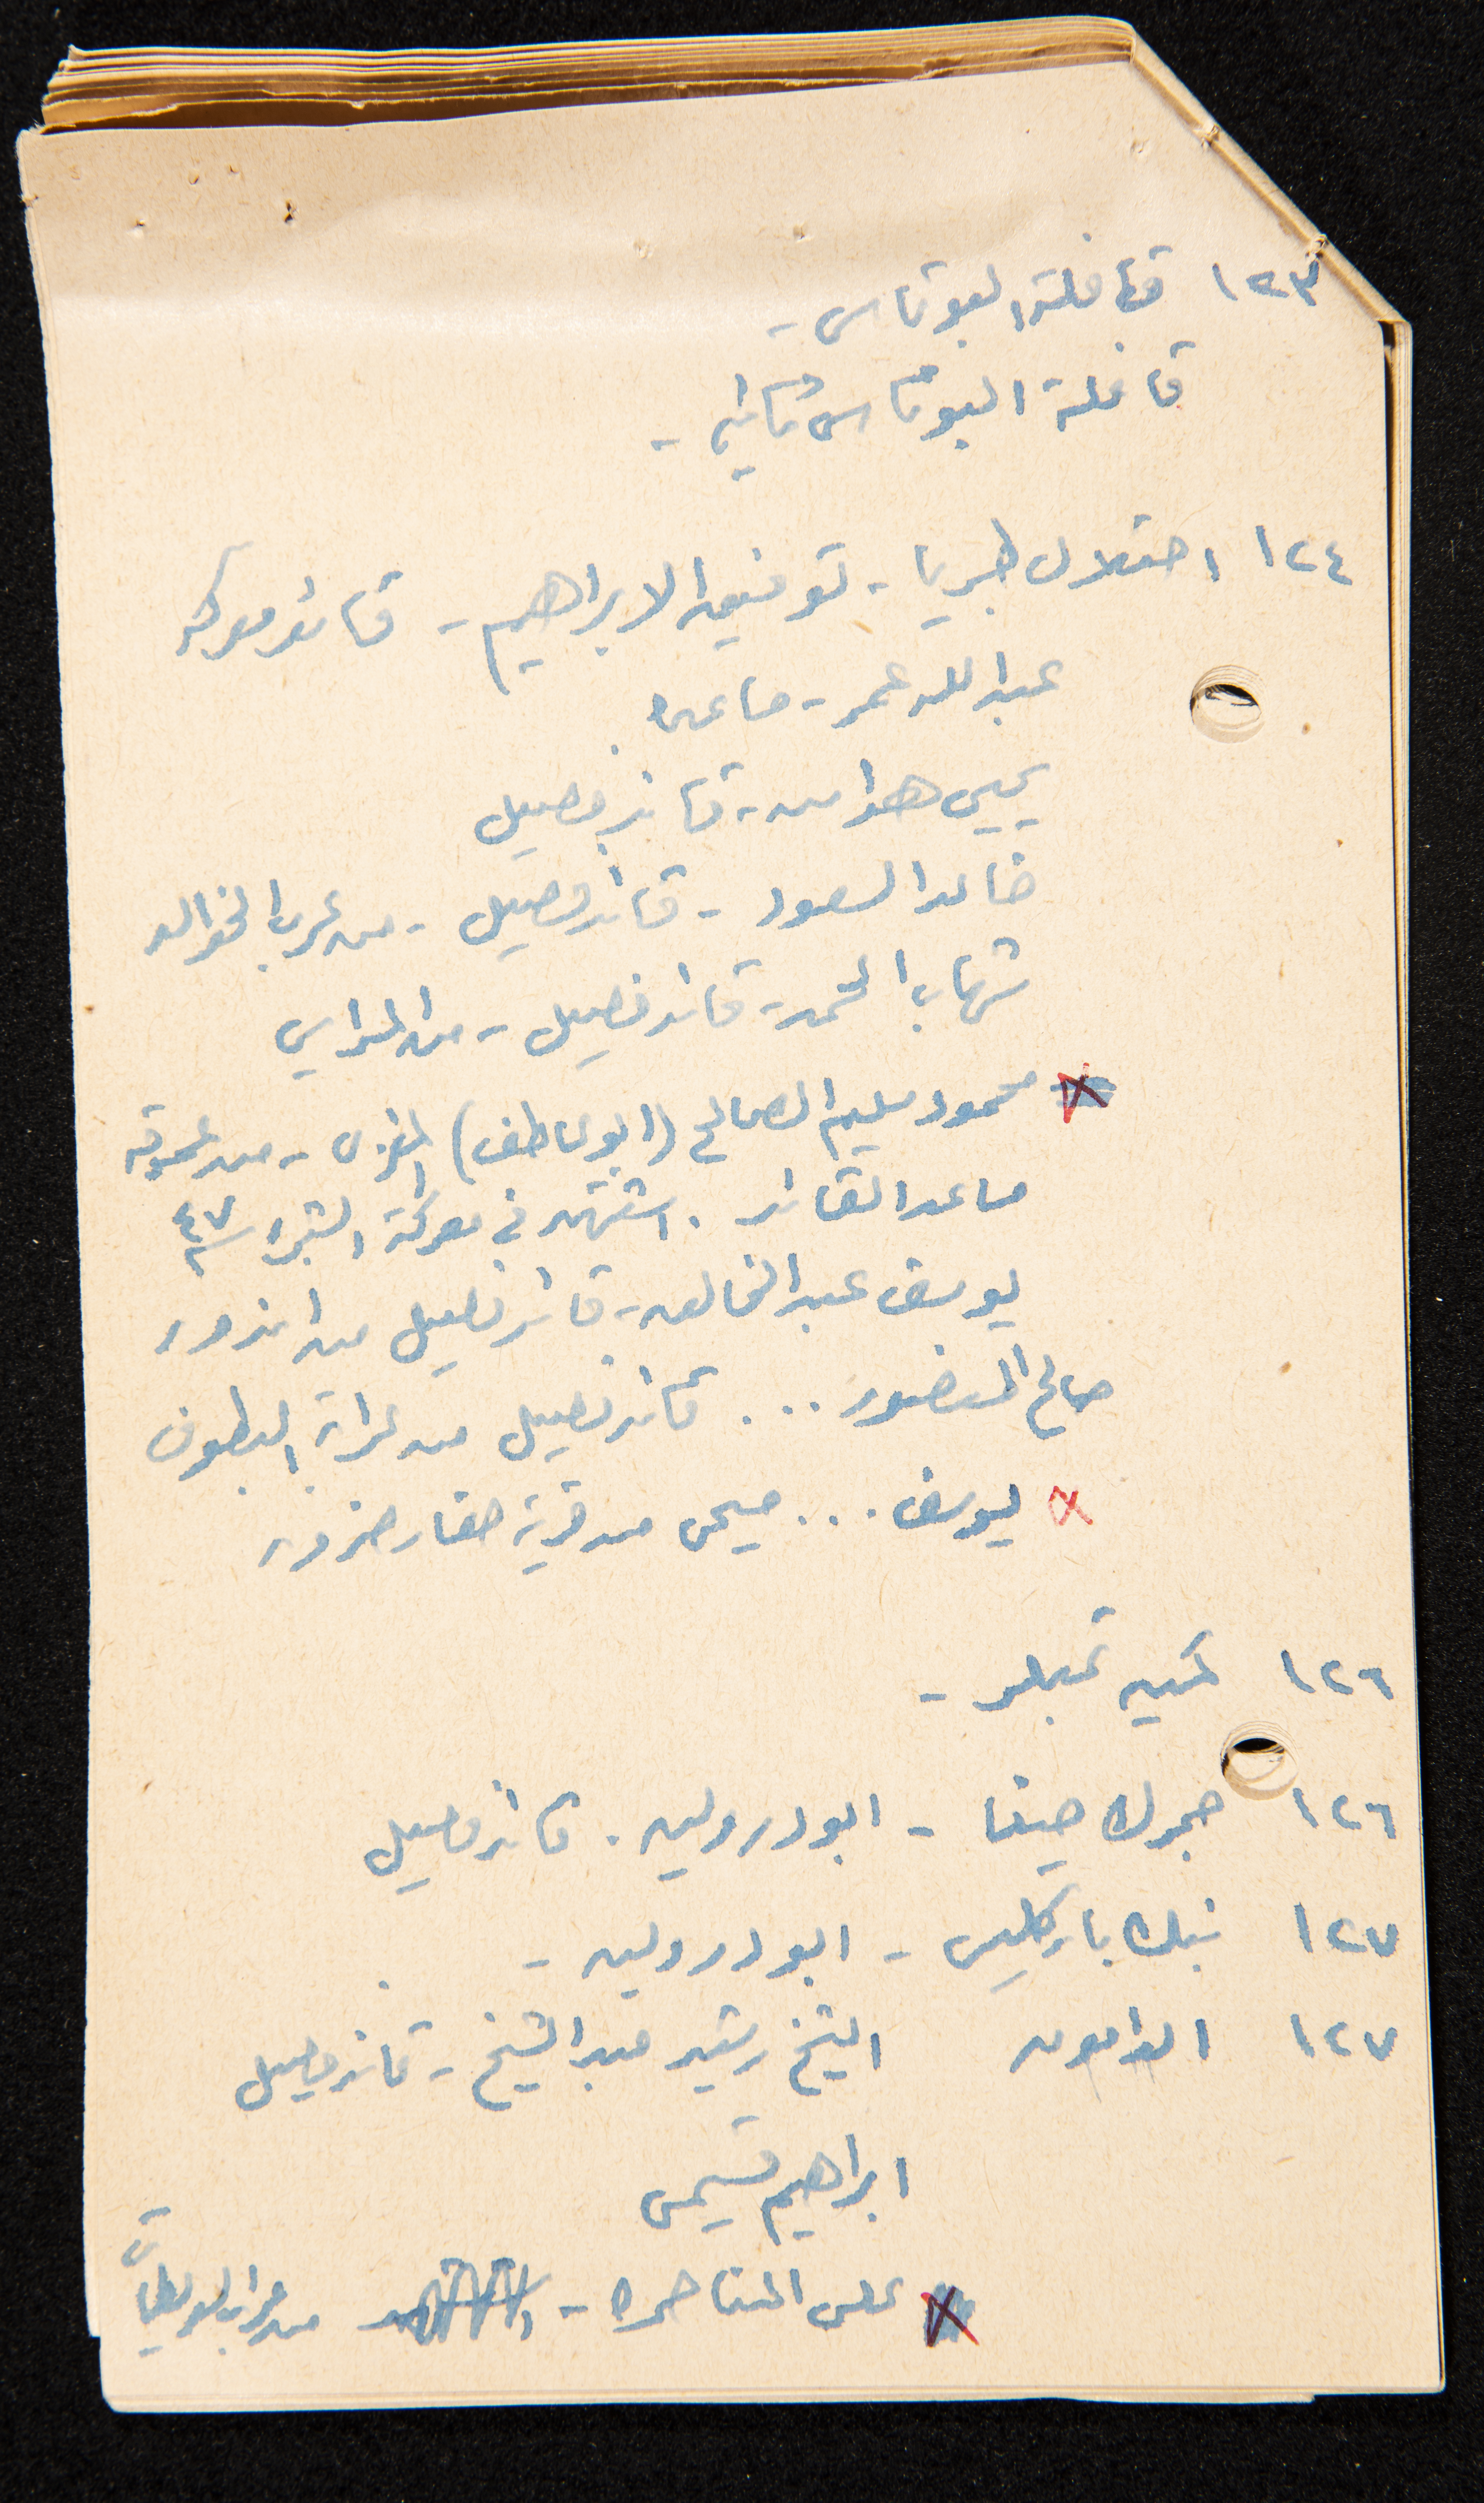 ١٢٣ قافلة البوتاس -
قافلة البوتاس ثاني -
١٢٤ احتلال طبريا - توفيق الابراهيم - قائد معركة
عبدالله عمر - ساعده
يحيى هواس - قائد فصيل
خالد السعود - قائد فصيل - من عرب الخوالد
شهاب المحمد - قائد فصيل - من
محمود سليم الصالح (ابو عاطف) المغربي - من عموقه
مساعد القائد . استشهد في معركة الشجرة سنة ٤٧
يوسف عبد الخالق - قائد فصيل من اندور
صالح المنصور ... قائد فصيل من عرابة البطوف
يوسف ... من قرية
١٢٦ كمين -
١٢٦ جمرك حيفا - ابو درولين . قائد فصيل
١٢٧ بنك باركليس - ابو درولين -
١٢٧ الدامون الشيخ رشيد عبد الشيخ - قائد فصيل
ابراهيم
علي المناصره - من عرب